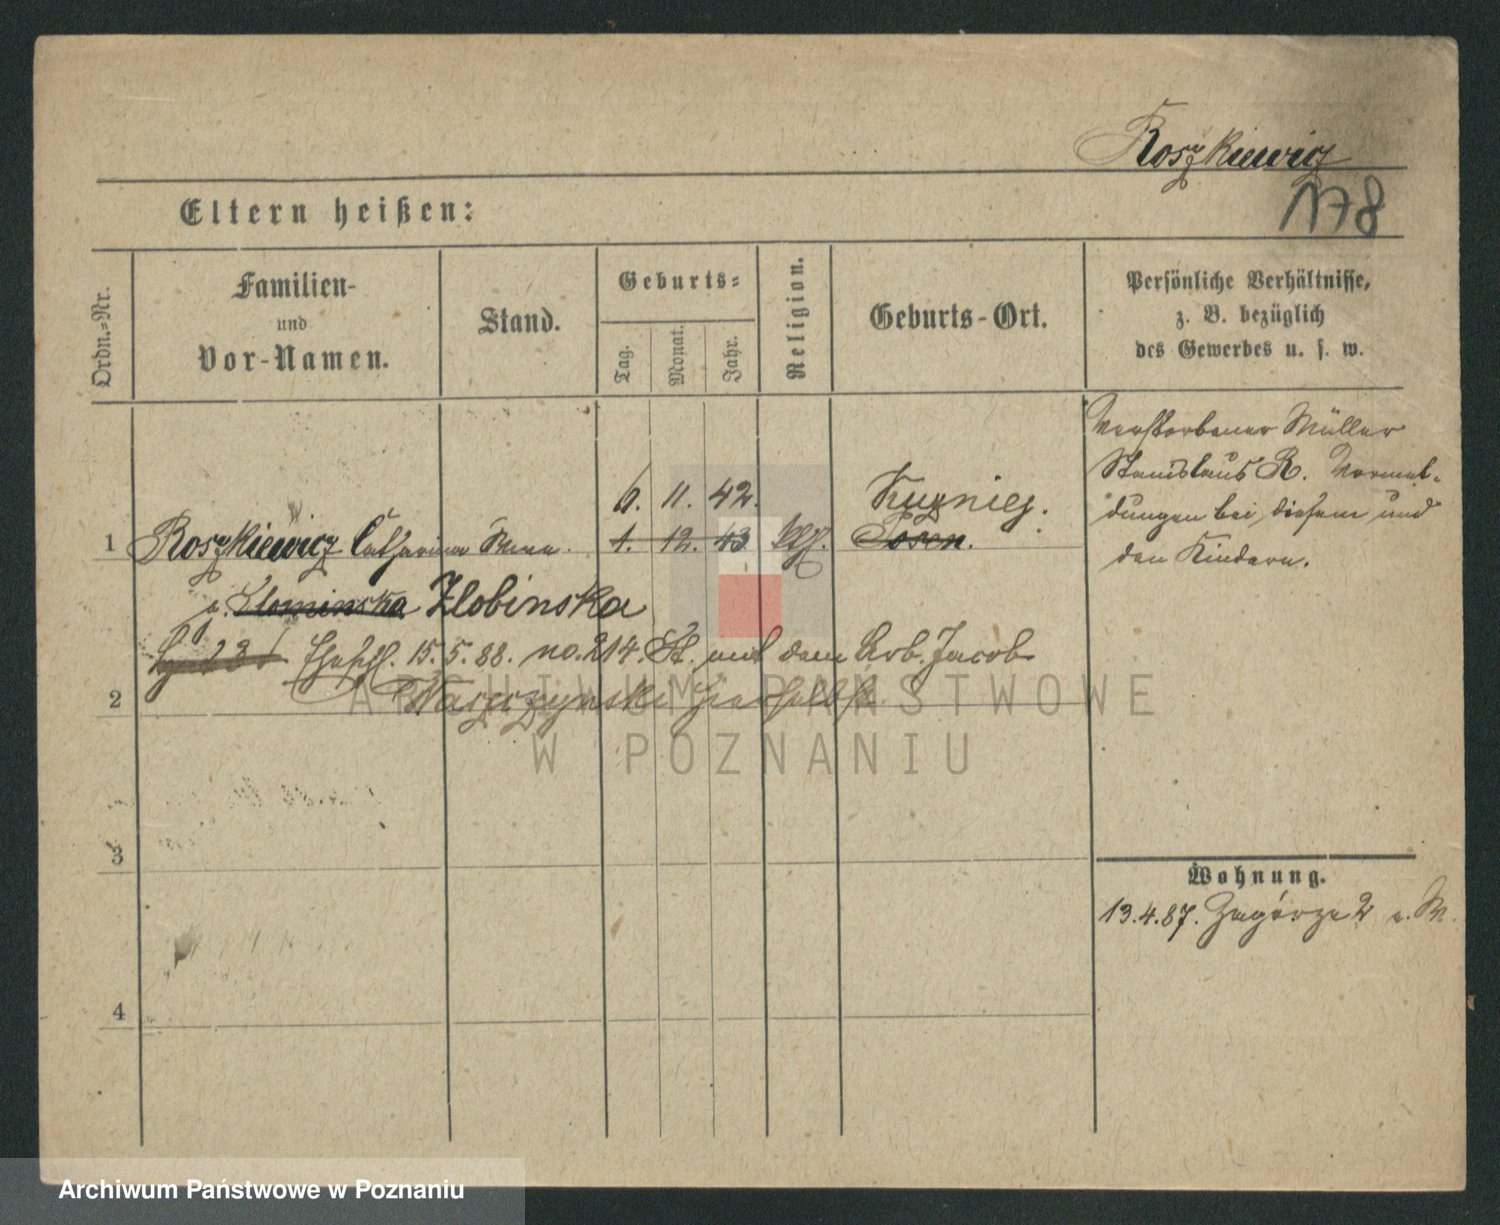 Roszkiewicz
178
Eltern heißen:
Ordn.-Nr.
Familien-
und
Vor-Namen.
Stand.
Geburts-
Tag.
Monat.
Jahr.
Religion.
Geburts-Ort.
Persönliche Verhältnisse,
z. B. bezüglich
des Gewerbes u. s. w.
Verstorbener Müller
Stanislaus R. Vormel-
dungen bei diesem und
den Kindern.
6. 11. 42.
1 Roszkiewicz Catharina 1. 12. 43 Posen.
Slominska Zlobinska
Eheschl. 15. 5. 88. no. 214. St. mit dem Arb. Jacob
2 hierselbst
3
4
Wohnung.
13.4.87. Zagórze 2
ARCHIWUM PAŃSTWOWE
W POZNANIU
Archiwum Państwowe w Poznaniu